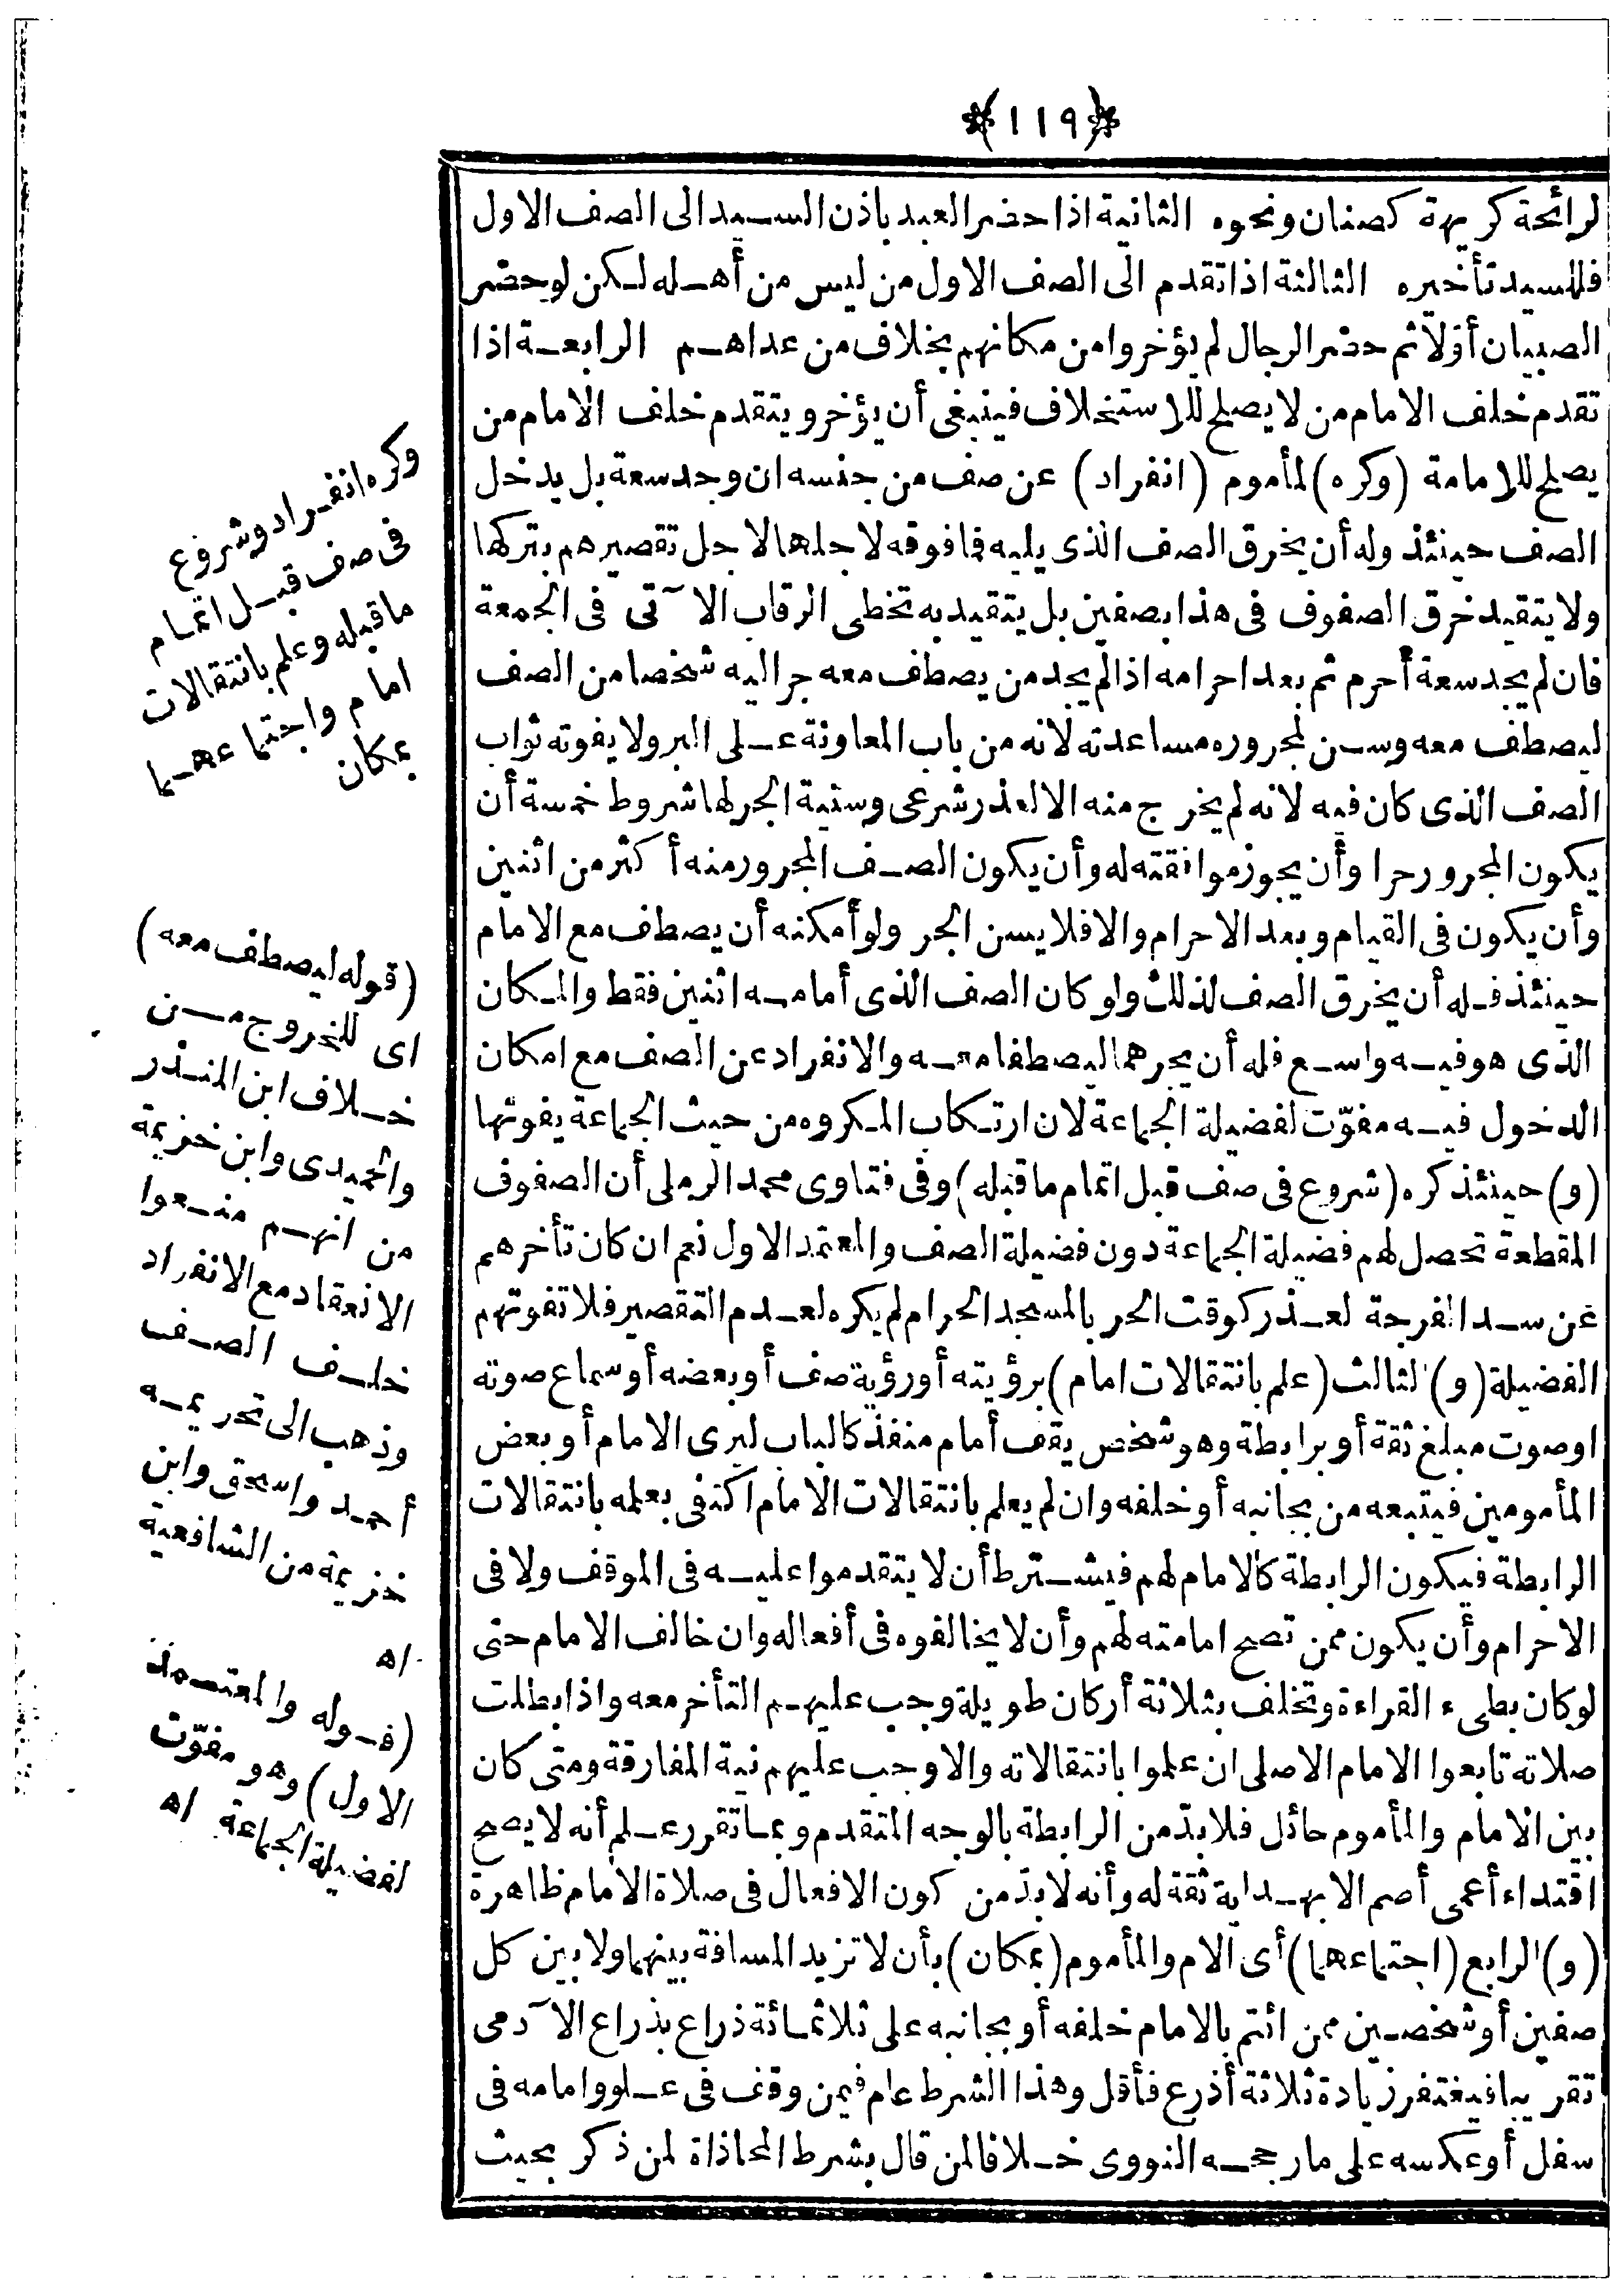 ١١٩
لرائحة كريهة كصنان ونحوه الثانية اذا حضر العبد باذن السيد الى الصف الاول
فللسيد تأخيره الثالثة اذا تقدم الى الصف الاول من ليس من أهله لكن لو حضر
الصبيان أوّلا ثم حضر الرجال لم يؤخروا من مكانهم بخلاف من عداهم الرابعة اذا
تقدم خلف الامام من لا يصلح للاستخلاف فينبغى أن يؤخر ويتقدم خلف الامام من
يصلح للامامة (وكره) لمأموم (انفراد) عن صف من جنسه ان وجد سعة بل يدخل
الصف حينئذ وله أن يخرق الصف الذى يليه فما فوقه لاجلها لاجل تقصيرهم بتركها
ولا يتقيد خرق الصفوف فى هذا بصفين بل يتقيد به تخطى الرقاب الآتى فى الجمعة
فان لم يجد سعة أحرم ثم بعد احرامه اذا لم يجد من يصطف معه جر اليه شخصا من الصف
ليصطف معه وسن لمجروره مساعدته لانه من باب المعاونة على البر ولا يفوته ثواب
الصف الذى كان فيه لانه لم يخرج منه الا لعذر شرعى وسنية الجر لها شروط خمسة أن
يكون المجرور حرا وأن يجوز موافقته له وأن يكون الصف المجرور منه أكثر من اثنين
وأن يكون فى القيام وبعد الاحرام والا فلا يسن الجر ولو أمكنه أن يصطف مع الامام
حينئذ فله أن يخرق الصف لذلك ولو كان الصف الذى أمامه اثنين فقط والمكان
الذى هو فيه واسع فله أن يجرهما ليصطفا معه والانفراد عن الصف مع امكان
الدخول فيه مفوّت لفضيلة الجماعة لان ارتكاب المكروه من حيث الجماعة يفوتها
(و) حينئذ كره (شروع فى صف قبل اتمام ما قبله) وفى فتاوى محمد الرملى أن الصفوف
المقطعة تحصل لهم فضيلة الجماعة دون فضيلة الصف والمعتمد الاول نعم ان كان تأخرهم
عن سد الفرجة لعذر كوقت الحر بالمسجد الحرام لم يكره لعدم التقصير فلا تفوتهم
الفضيلة (و) الثالث (علم بانتقالات امام) برؤيته أو رؤية صف أو بعضه أو سماع صوته
او صوت مبلغ ثقة أو برابطة وهو شخص يقف أمام منفذ كالباب ليرى الامام أو بعض
المأمومين فيتبعه من بجانبه أو خلفه وان لم يعلم بانتقالات الامام اكتفى بعلمه بانتقالات
الرابطة فيكون الرابطة كالامام لهم فيشترط أن لا يتقدموا عليه فى الموقف ولا فى
الاحرام وأن يكون ممن تصح امامته لهم وأن لا يخالفوه فى أفعاله وان خالف الامام حتى
لو كان بطىء القراءة وتخلف بثلاثة أركان طويلة وجب عليهم التأخر معه واذا بطلت
صلاته تابعوا الامام الاصلى ان علموا بانتقالاته والا وجب عليهم نية المفارقة ومتى كان
بين الامام والمأموم حائل فلا بدّ من الرابطة بالوجه المتقدم وبما تقرر علم أنه لا يصح
اقتداء أعمى أصم الا بهداية ثقة له وأنه لا بدّ من كون الافعال فى صلاة الامام ظاهرة
(و) الرابع (اجتماعهما) أى الام والمأموم (بمكان) بأن لا تزيد المسافة بينهما ولا بين كل
صفين أو شخصين ممن ائتم بالامام خلفه أو بجانبه على ثلاثمائة ذراع بذراع الآدمى
تقريبا فيغتفر زيادة ثلاثة أذرع فأقل وهذا الشرط عام فيمن وقف فى علو وامامه فى
سفل أو عكسه على ما رجحه النووى خلافا لمن قال بشرط المحاذاة لمن ذكر بحيث
وكره انفراد وشروع
فى صف قبل اتمام
ما قبله وعلم بانتقالات
امام واجتماعهما
بمكان
(قوله ليصطف معه)
اى للخروج من
خلاف ابن المنذر
والحميدى وابن خزيمة
من انهم منعوا
الانعقاد مع الانفراد
خلف الصف
وذهب الى تحريمه
أحمد واسحق وابن
خزيمة من الشافعية
اه
(قوله والمعتمد
الاول) وهو مفوّت
لفضيلة الجماعة اه